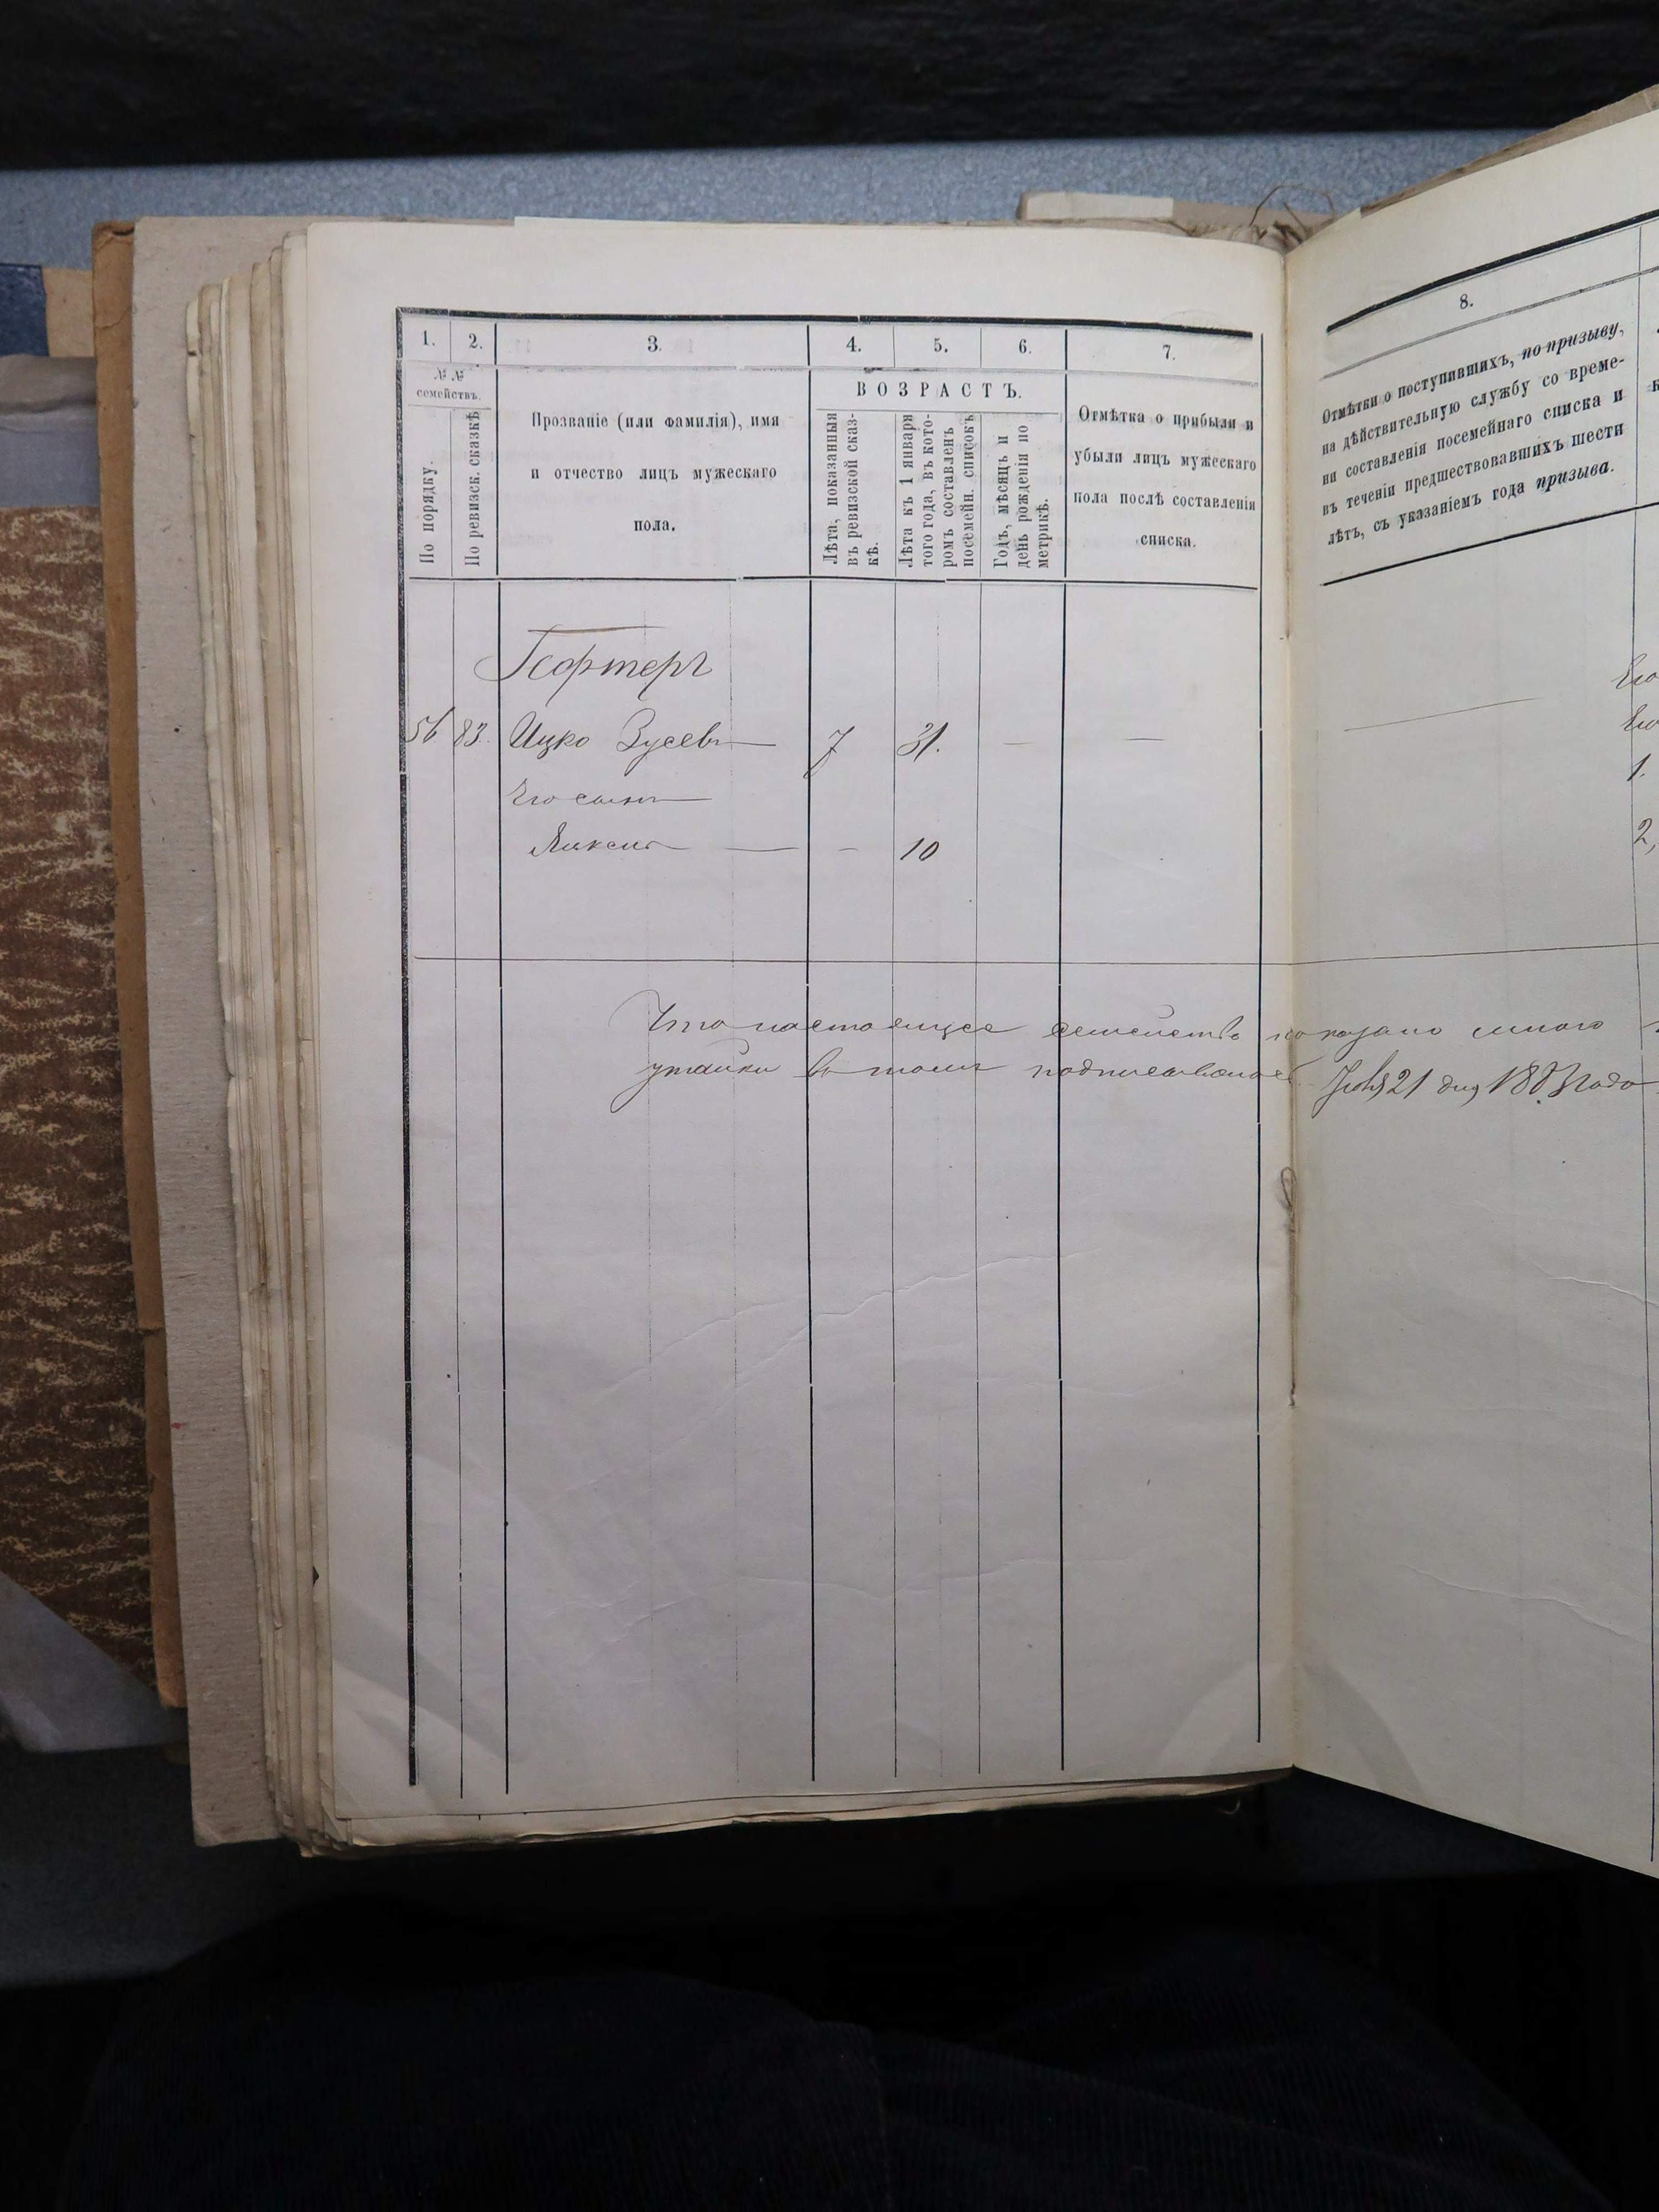 1.
2.
3.
4.
5.
6.
7.
№ №
семействъ.
По порядку.
По ревизск. сказкѣ
Прозваніе (или фамилія), имя
и отчество лицъ мужескаго
пола.
ВОЗРАСТЪ.
Лѣта, показанныя
въ ревизской сказ-
кѣ.
Лѣта къ 1 января
того года, въ кото-
ромъ составленъ
посемейн. списокъ
Годъ, мѣсяцъ и
день рожденія по
метрикѣ.
Отмѣтка о прибыли и
убыли лицъ мужескаго
пола послѣ составленія
списка.
56 83. Ицко Зусевъ 7 31. — —
Его сынъ
— - 10
Что настоящее семейство показано мною
утайки въ томъ 21 дня 1883 года
8.
Отмѣтки о поступившихъ, по призыву,
на дѣйствительную службу со време-
ни составленія посемейнаго списка и
въ теченіи предшествовавшихъ шести
лѣтъ, съ указаніемъ года призыва.
Его
Его
1.
2,